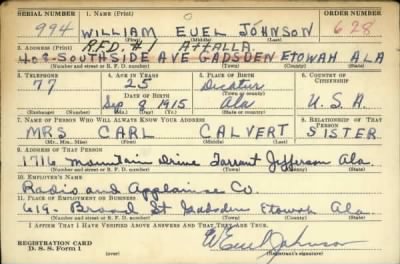 SERIAL NUMBER 1. NAME (Print) ORDER NUMBER
994 WILLIAM EUEL JOHNSON 628
(First) (Middle) (Last)
R.F.D. #1 ATTALLA.
2. ADDRESS (Print)
408-SOUTHSIDE AVE GADSDEN ETOWAH ALA
(Number and street or R. F. D. number) (Town) (County) (State)
3. TELEPHONE 4. AGE IN YEARS 5. PLACE OF BIRTH 6. COUNTRY OF CITIZENSHIP
77 25 Decatur
(Town or county)
DATE OF BIRTH
Sep 8 1915 Ala U.S.A.
(Exchange) (Number) (Mo.) (Day) (Yr.) (State or country)
7. NAME OF PERSON WHO WILL ALWAYS KNOW YOUR ADDRESS 8. RELATIONSHIP OF THAT PERSON
MRS CARL CALVERT SISTER
(Mr., Mrs., Miss) (First) (Middle) (Last)
9. ADDRESS OF THAT PERSON
1716 Mountain Drive Tarrant Jefferson Ala.
(Number and street or R. F. D. number) (Town) (County) (State)
10. EMPLOYER'S NAME
Radio and Appliance Co.
11. PLACE OF EMPLOYMENT OR BUSINESS
619- Broad St Gadsden Etowah Ala.
(Number and street or R. F. D. number) (Town) (County) (State)
I AFFIRM THAT I HAVE VERIFIED ABOVE ANSWERS AND THAT THEY ARE TRUE.
REGISTRATION CARD
D. S. S. Form 1 (over) W Euel Johnson
(Registrant's signature)